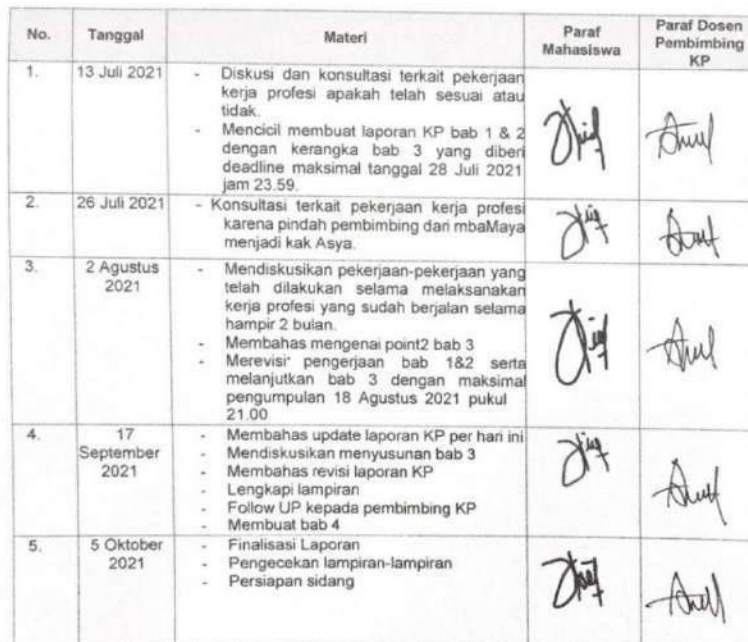 No.
Tanggal
Materi
Paraf
Mahasiswa
Paraf Dosen
Pembimbing
KP
1.
13 Juli 2021
- Diskusi dan konsultasi terkait pekerjaan
kerja profesi apakah telah sesuai atau
tidak.
- Mencicil membuat laporan KP bab 1 & 2
dengan kerangka bab 3 yang diberi
deadline maksimal tanggal 28 Juli 2021
jam 23.59.
2.
26 Juli 2021
- Konsultasi terkait pekerjaan kerja profesi
karena pindah pembimbing dari mbaMaya
menjadi kak Asya.
3.
2 Agustus
2021
- Mendiskusikan pekerjaan-pekerjaan yang
telah dilakukan selama melaksanakan
kerja profesi yang sudah berjalan selama
hampir 2 bulan.
- Membahas mengenai point2 bab 3
- Merevisi pengerjaan bab 1&2 serta
melanjutkan bab 3 dengan maksimal
pengumpulan 18 Agustus 2021 pukul
21.00
4.
17
September
2021
- Membahas update laporan KP per hari ini
- Mendiskusikan menyusunan bab 3
- Membahas revisi laporan KP
- Lengkapi lampiran
- Follow UP kepada pembimbing KP
- Membuat bab 4
5.
5 Oktober
2021
- Finalisasi Laporan
- Pengecekan lampiran-lampiran
- Persiapan sidang